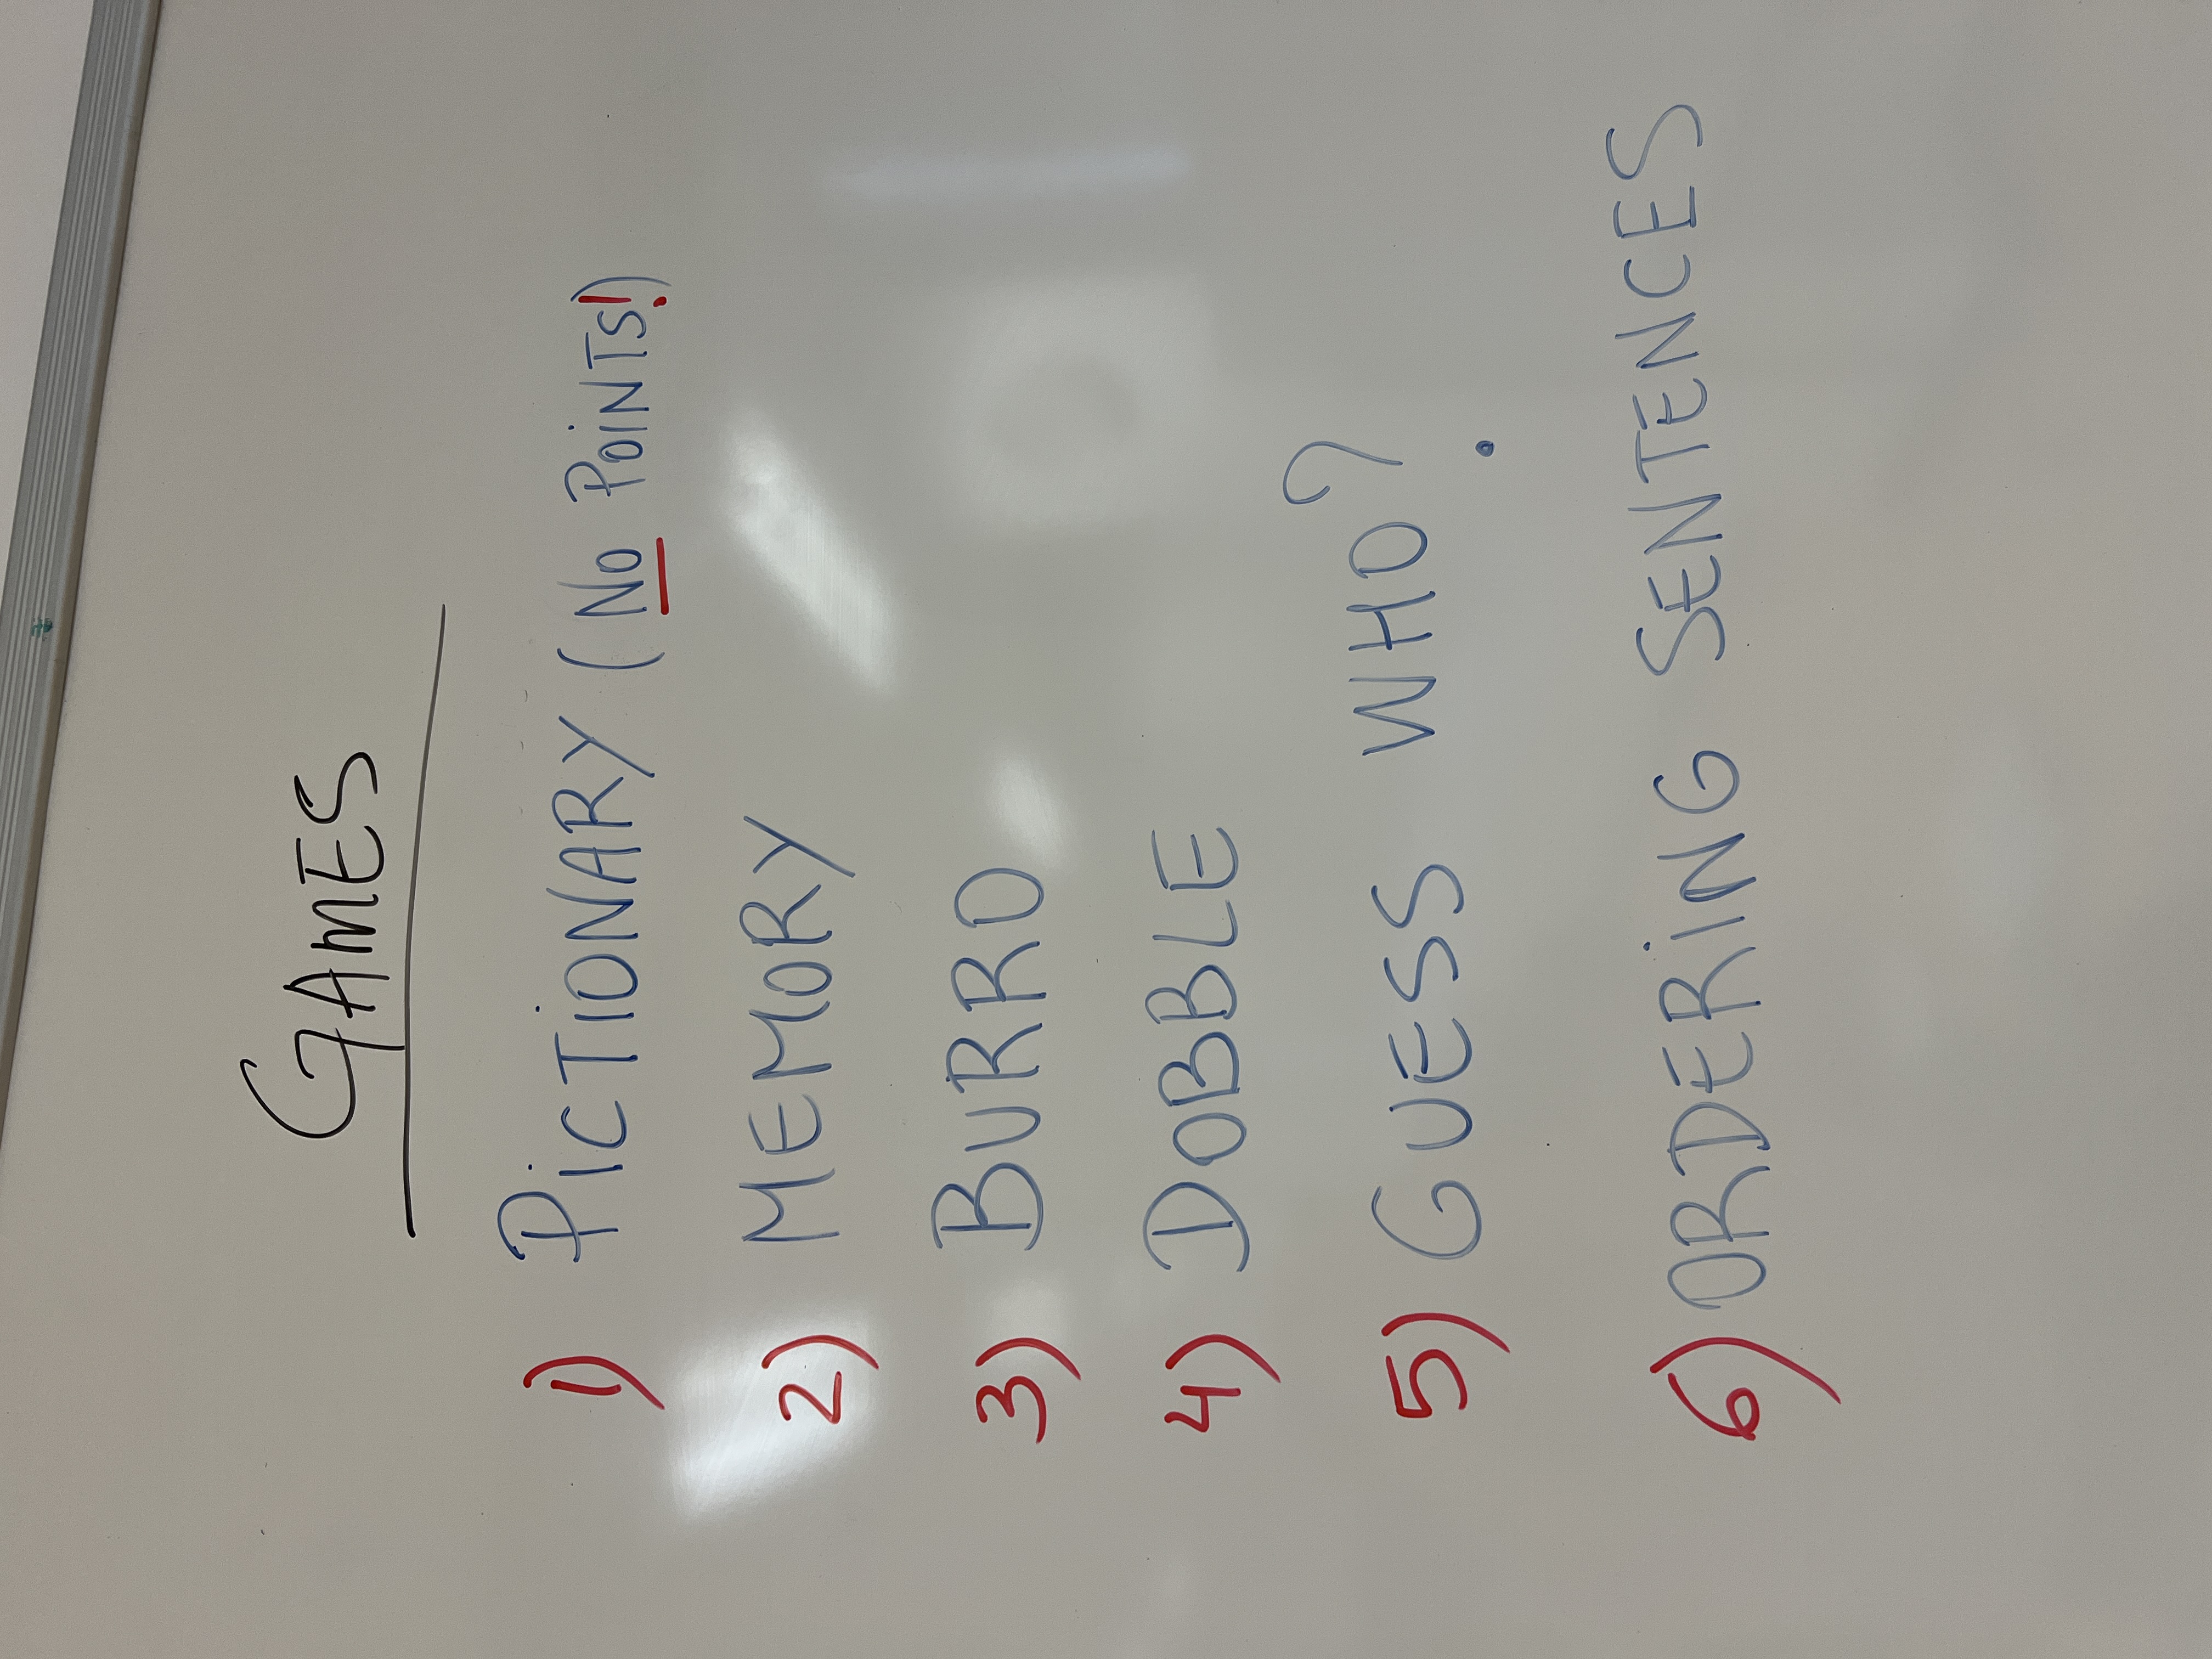 GAMES
1) PICTIONARY (No PoiNTs!)
2) MEMORY
3) BURRO
4) DOBBLE
5) GUESS WHO?
6) ORDERING SENTENCES